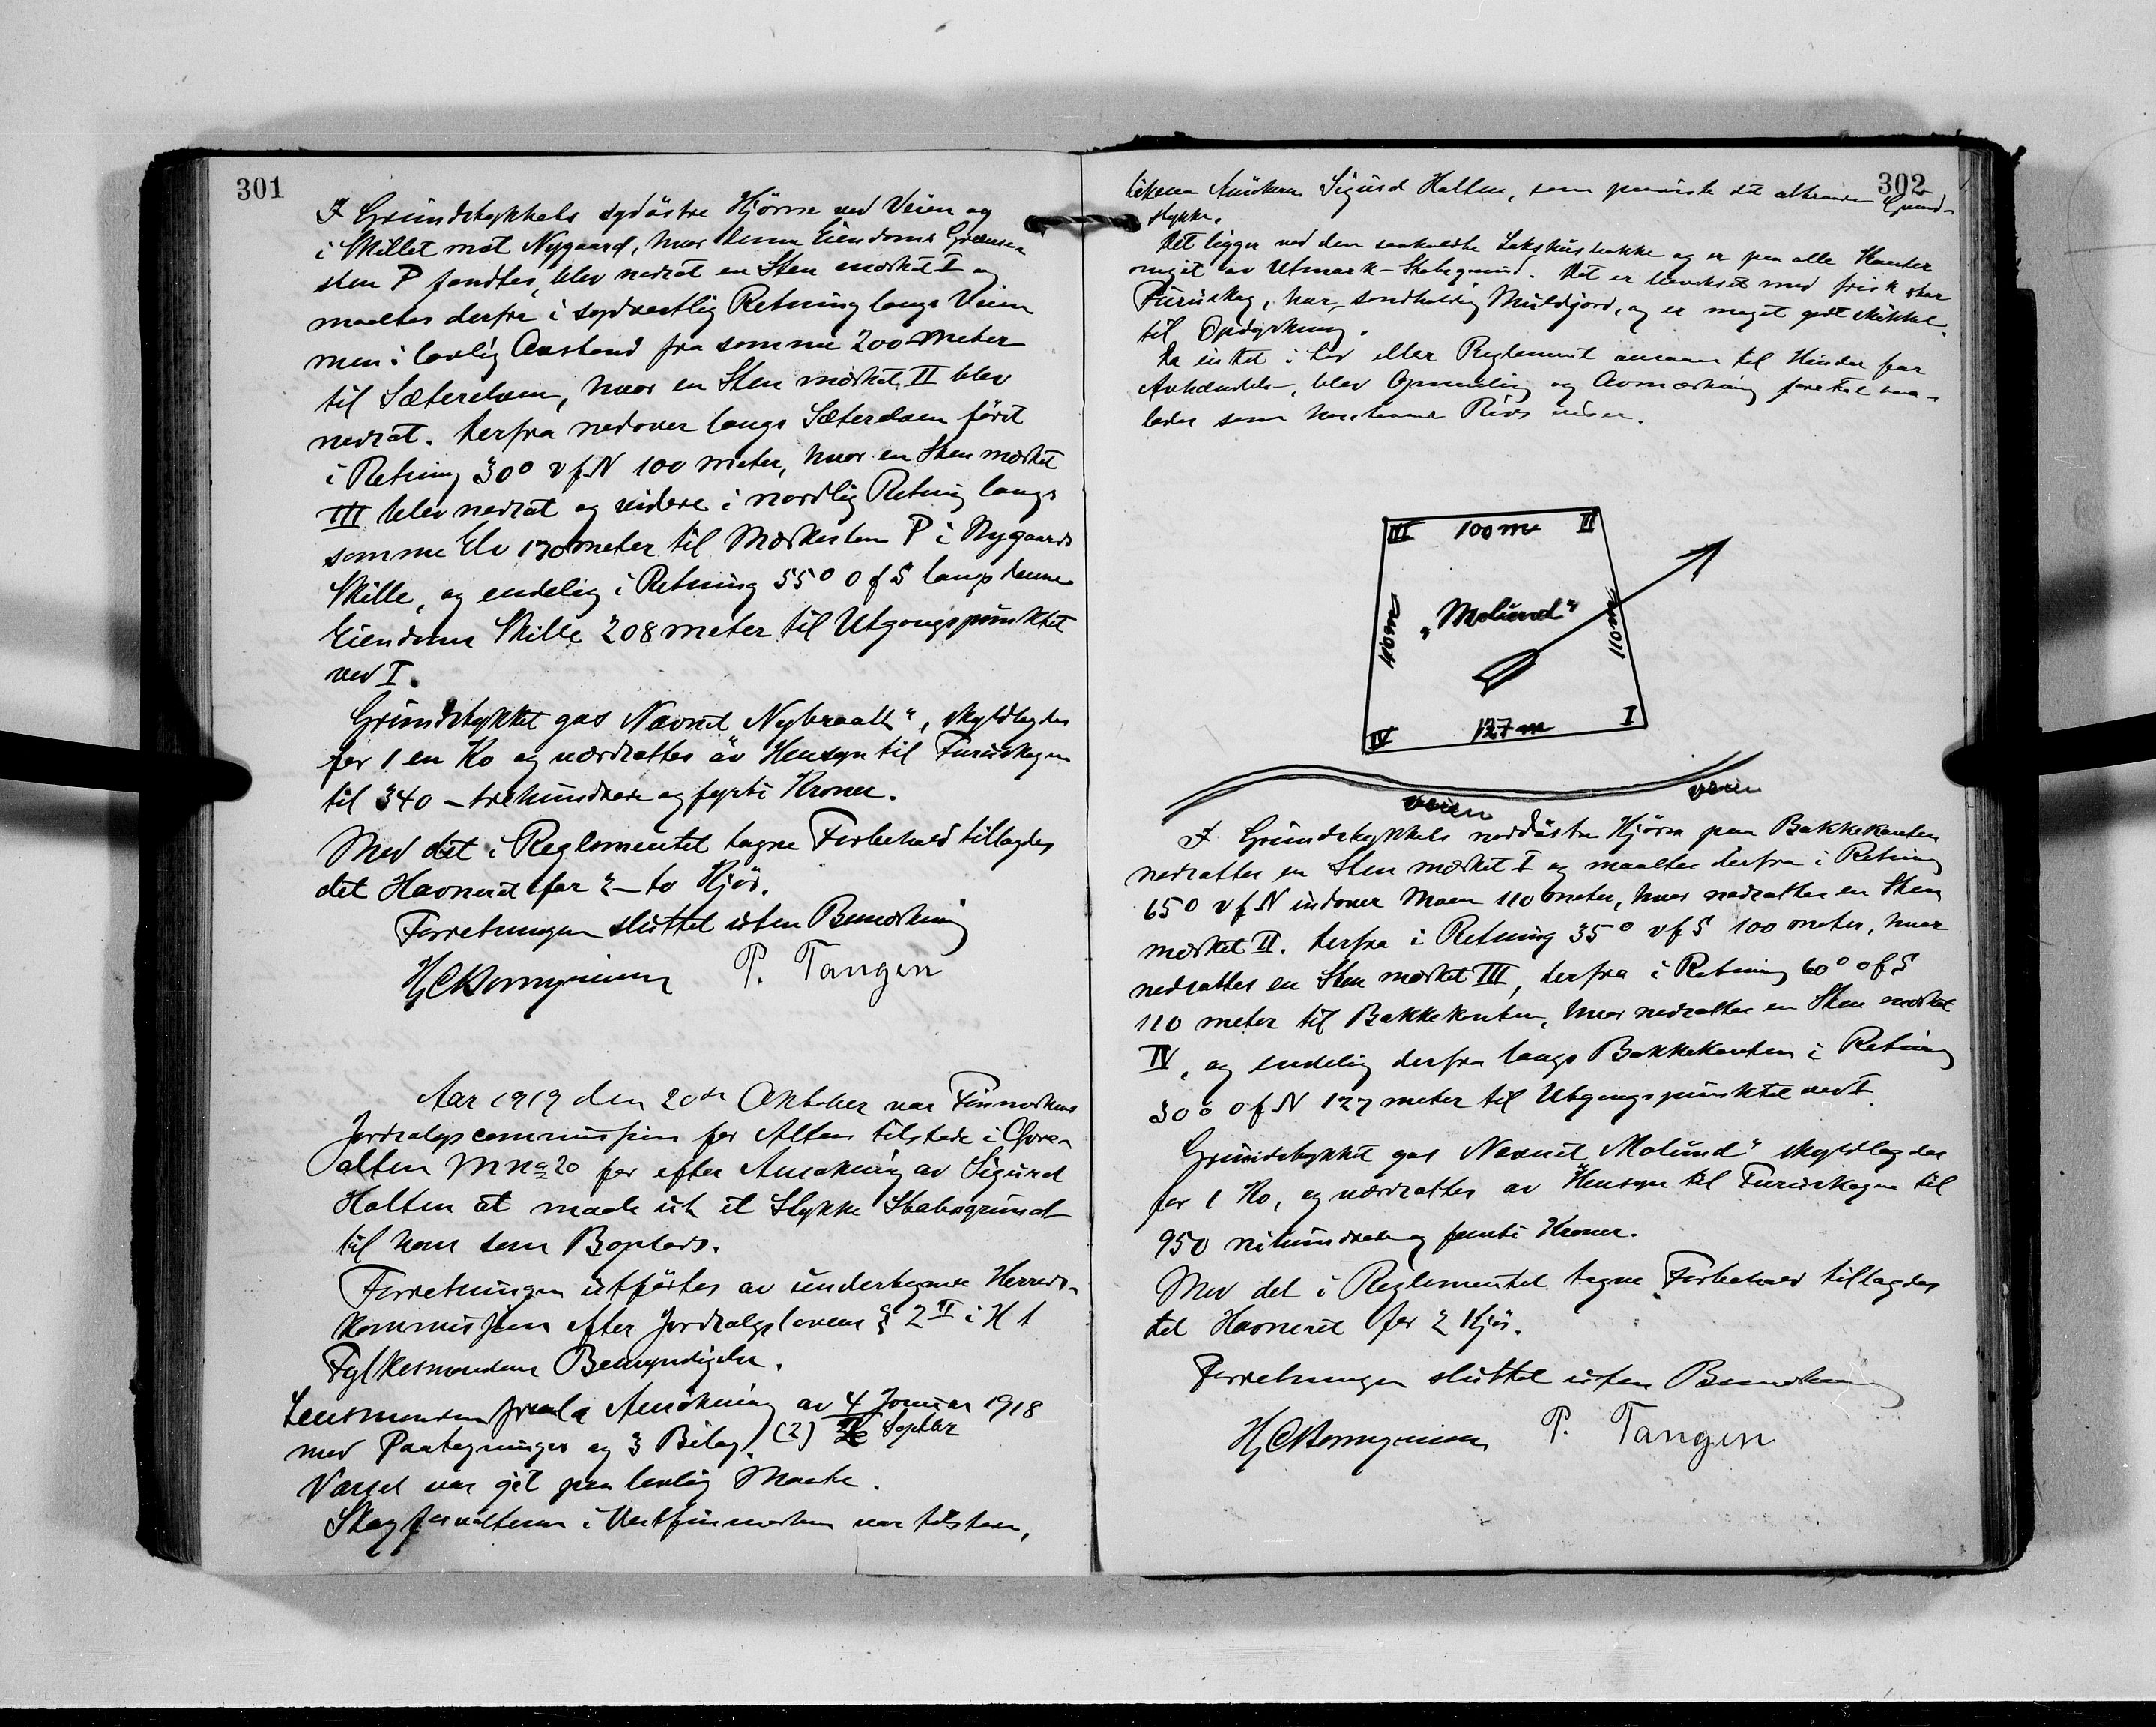 301
I Grundstykkets sydöstre Hjörne ved Veien og
i Skillet mot Nygaard, hvor denne Eiendoms Grænse-
sten P fandtes, blev nedsat en Sten mærket I og
maaltes derfra i sydvestlig Retning langs Veien
men i lovlig Avstand fra samme 200 Meter
til Sæterelven, hvor en Sten mærket II blev
nedsat. Derfra nedover langs Sæterelven först
i Retning 30° v f N 100 meter, hvor en Sten mærket
III blev nedsat og videre i nordlig Retning langs
samme Elv 170 meter til Mærkesten P i Nygaards
Skille, og endelig i Retning 55° o f S langs denne
Eiendoms Skille 208 meter til Utgangspunktet
ved I.
Grundstykket gas Navnet "Nybraatt", skyldlagdes
for 1 en Ko og værdsattes av Hensyn til Furuskogen
til 340 - trehundrede og fyrti Kroner.
Med det i Reglementet tagne Forbehold tillagdes
det Havneret for 2 - to Kjör.
Forretningen sluttet uten Bemærkning
P. Tangen
Aar 1919 den 20de Oktober var Finmarkens
Jordsalgscommission for Alten tilstede i Övre-
alten M no 20 for efter Ansökning av Sigurd
Holten at maale ut et Stykke Statsgrund
til ham som Boplads.
Forretningen utförtes av undertegnede Herreds-
kommission efter Jordsalgslovens § 2 II i H t
Fylkesmandens Bemyndigelse.
Lensmanden fremla Ansökning av 4 Januar 1918
med Paategninger og 3 Bilag. (2) Septbr
Varsel var git paa lovlig Maate.
Skogforvalteren i Vestfinmarken var tilstede,
302
likesaa Ansökeren Sigurd Holten, som paaviste det attraaede Grund-
stykke.
Det ligger ved den saakaldte bakke og er paa alle Kanter
omgit av Utmark - Statsgrund. Det er bevokset med frisk stor
Furuskog, har sandholdig Muldjord, og er meget godt skikket
til Opdyrkning.
Da intet i Lov eller Reglement ansaaes til Hinder for
Avhændelse, blev Opmaaling og Avmerkning foretat saa-
ledes som hosstaaende Rids viser.
III 100 m II
40 m "Molund" 110 m
IV 127 m I
veien veien
I Grundstykkets nordöstre Hjörne paa Bakkekanten
nedsattes en Sten mærket I og maaltes derfra i Retning
65° v f N indover Moen 110 meter, hvor nedsattes en Sten
mærket II. Derfra i Retning 35° v f S 100 meter, hvor
nedsattes en Sten mærket III, derfra i Retning 60° o f S
110 meter til Bakkekanten, hvor nedsattes en Sten mærket
IV, og endelig derfra langs Bakkekanten i Retning
30° o f N 127 meter til Utgangspunktet ved I.
Grundstykket gas Navnet "Molund" skyldlagdes
for 1 Ko, og værdsattes av Hensyn til Furuskogen til
950 nihundrede og femti Kroner.
Med det i Reglementet tagne Forbehold tillagdes
det Havneret for 2 Kjör.
Forretningen sluttet uten Bemærkning
P. Tangen